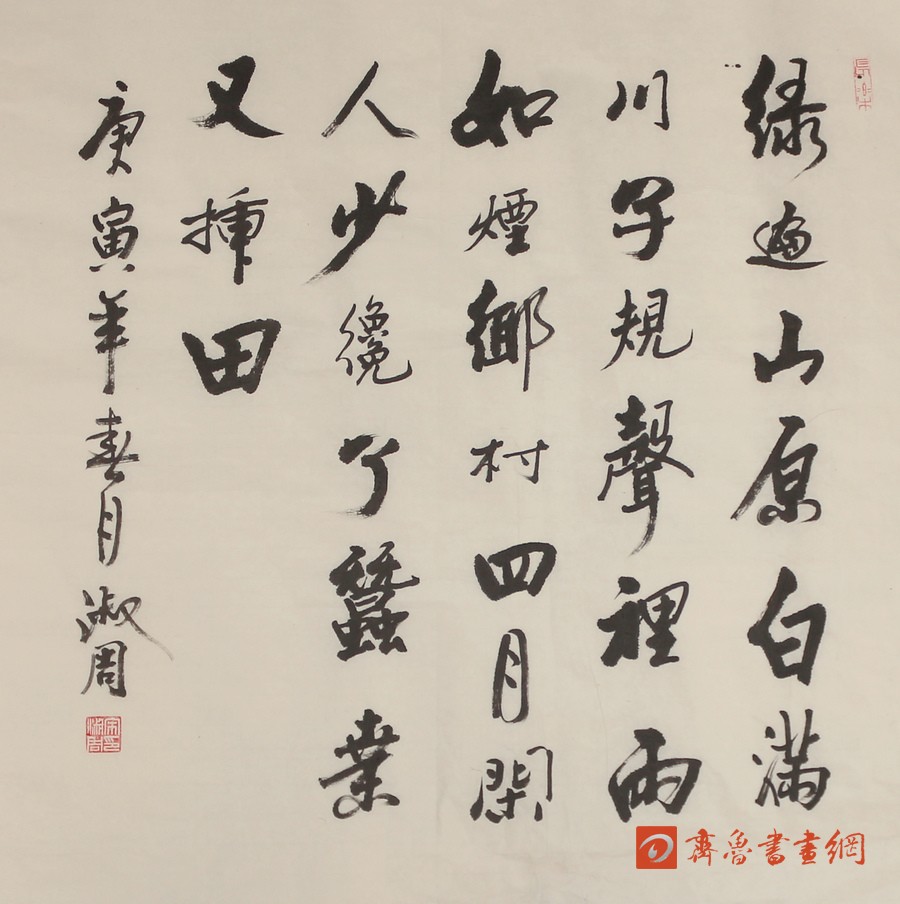 緑遍山原白滿
川子規聲裡雨
如煙鄉村四月閑
人少纔了蠶桒
又插田
庚寅年春月淑周
齊魯書畫網